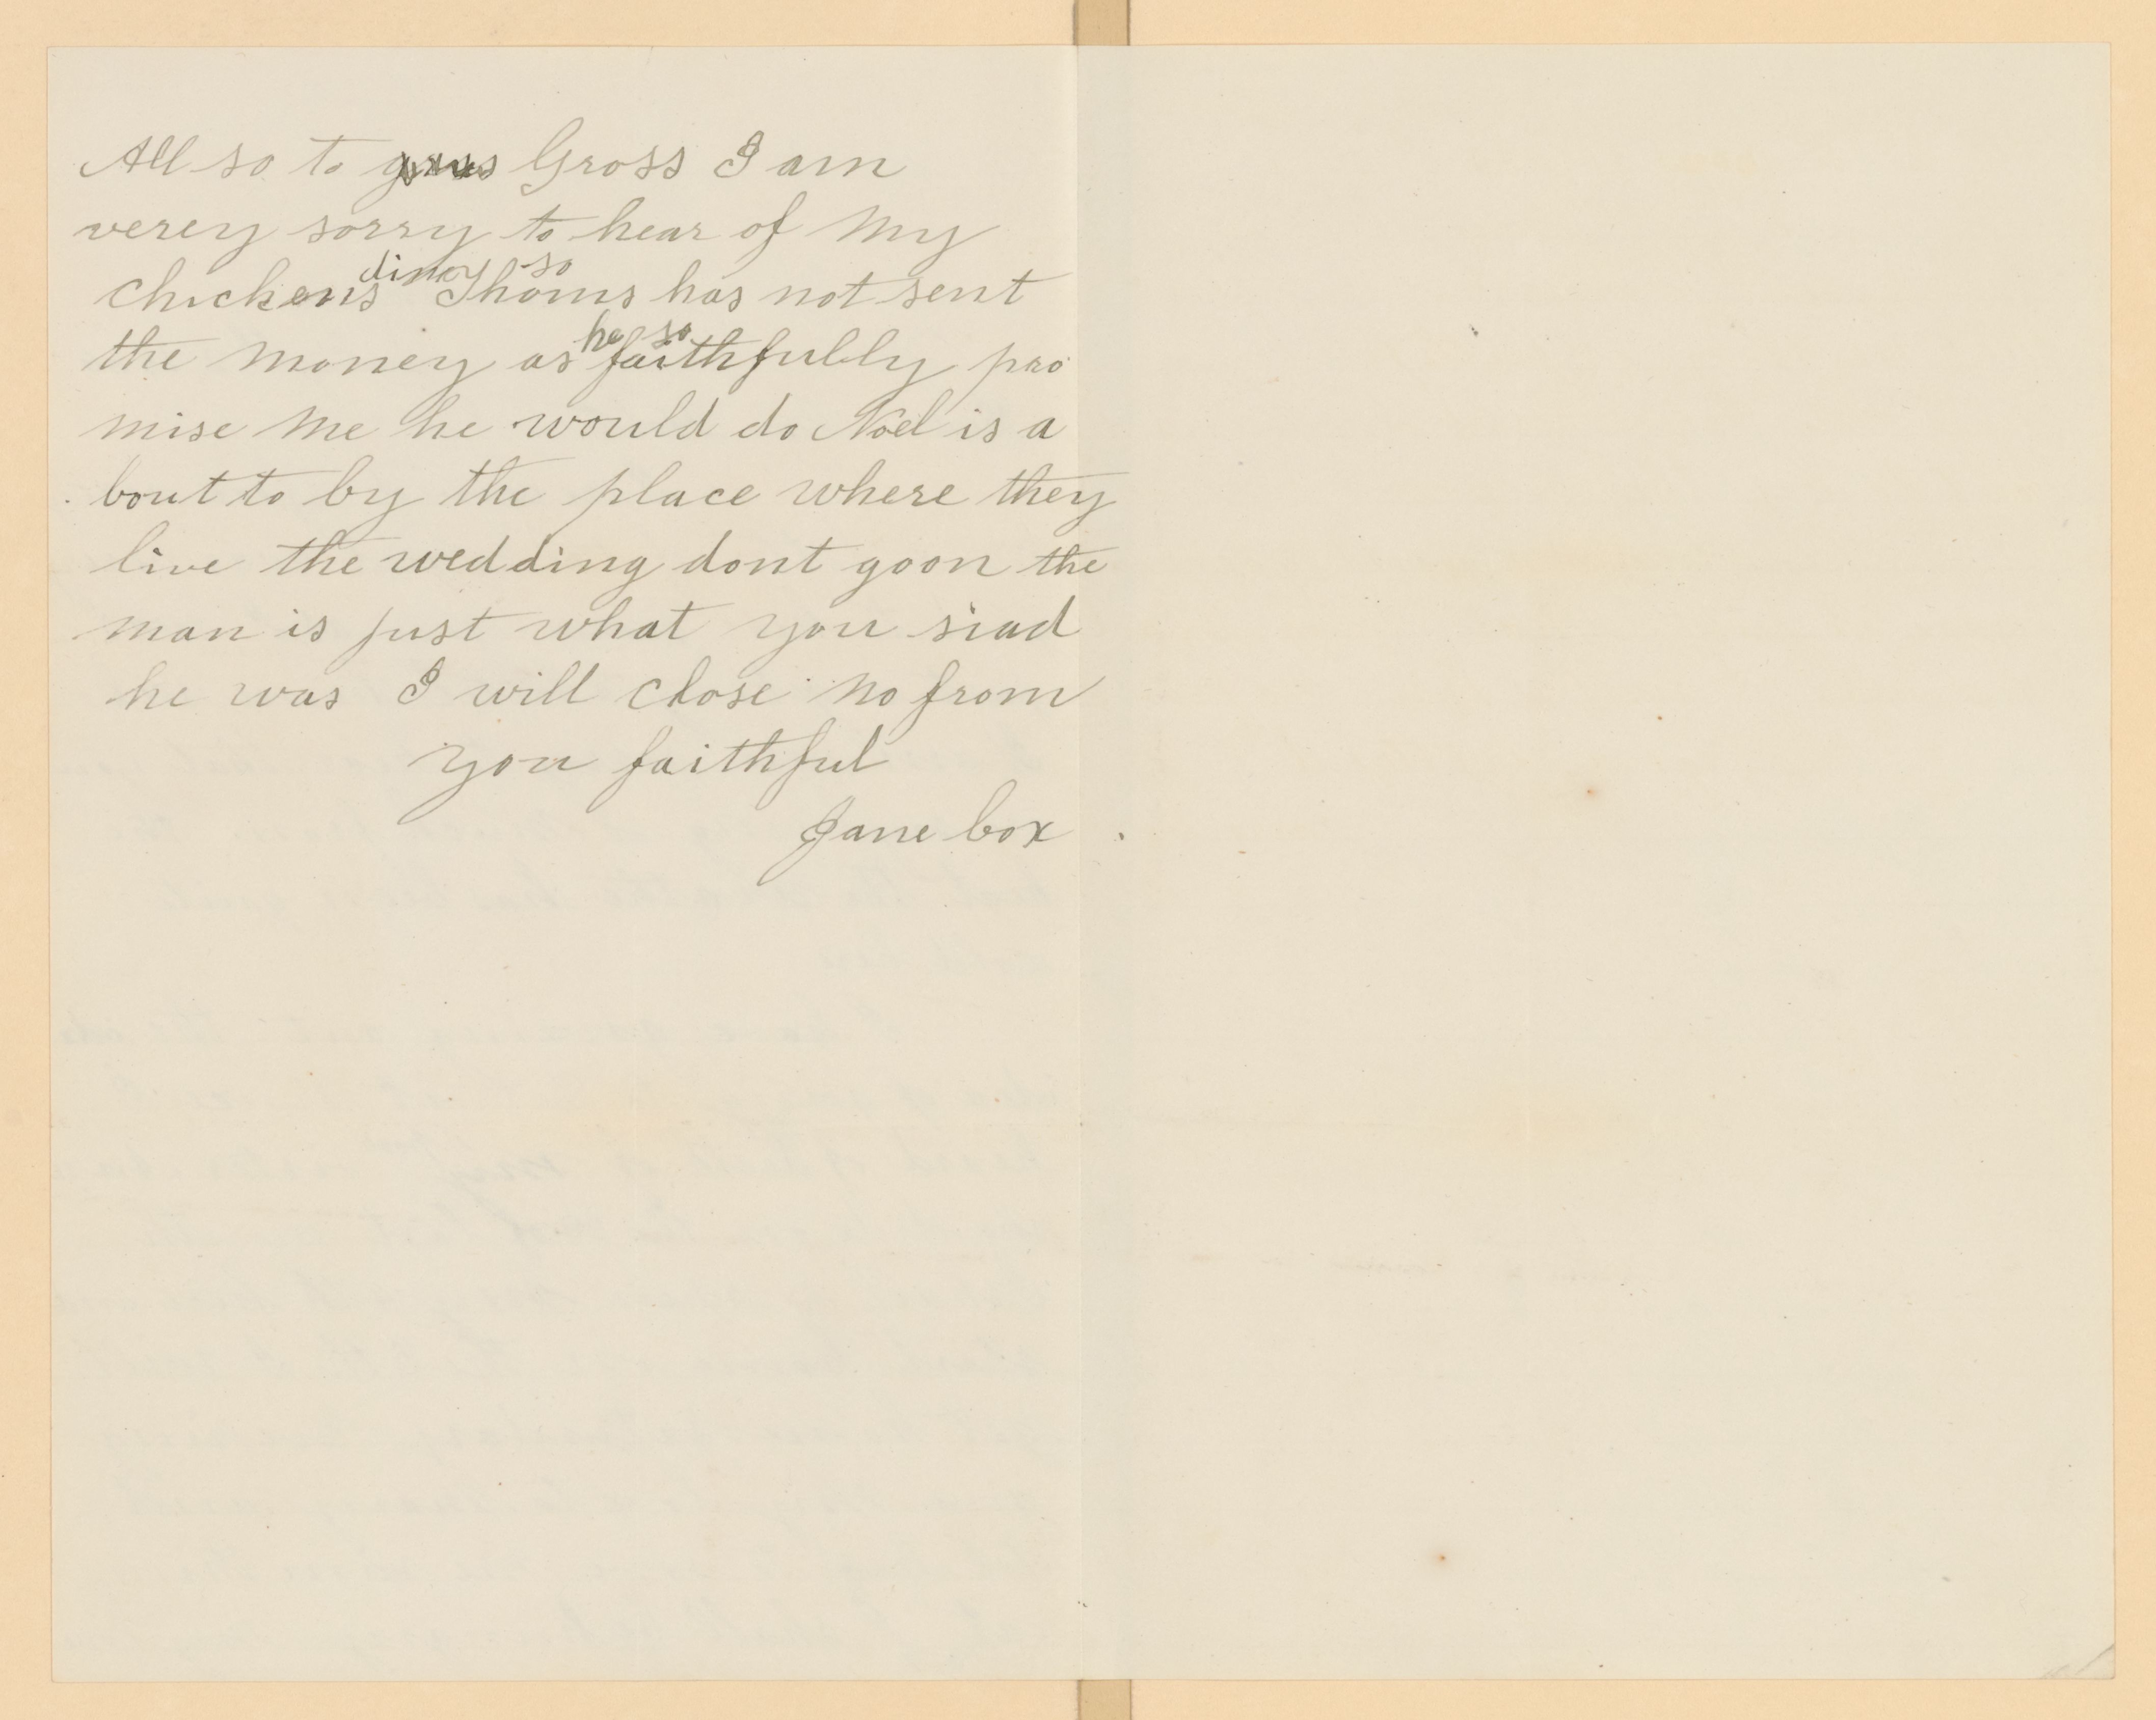 All so to Gross I am
verey sorry to hear of My
chickens diney so Thoms has not sent
the Money as he so faithfully pro
mise Me he would do Noel is a
bout to by the place where they
live the wedding dont goon the
man is just what you siad
he was I will close no from
you faithful
Jane box